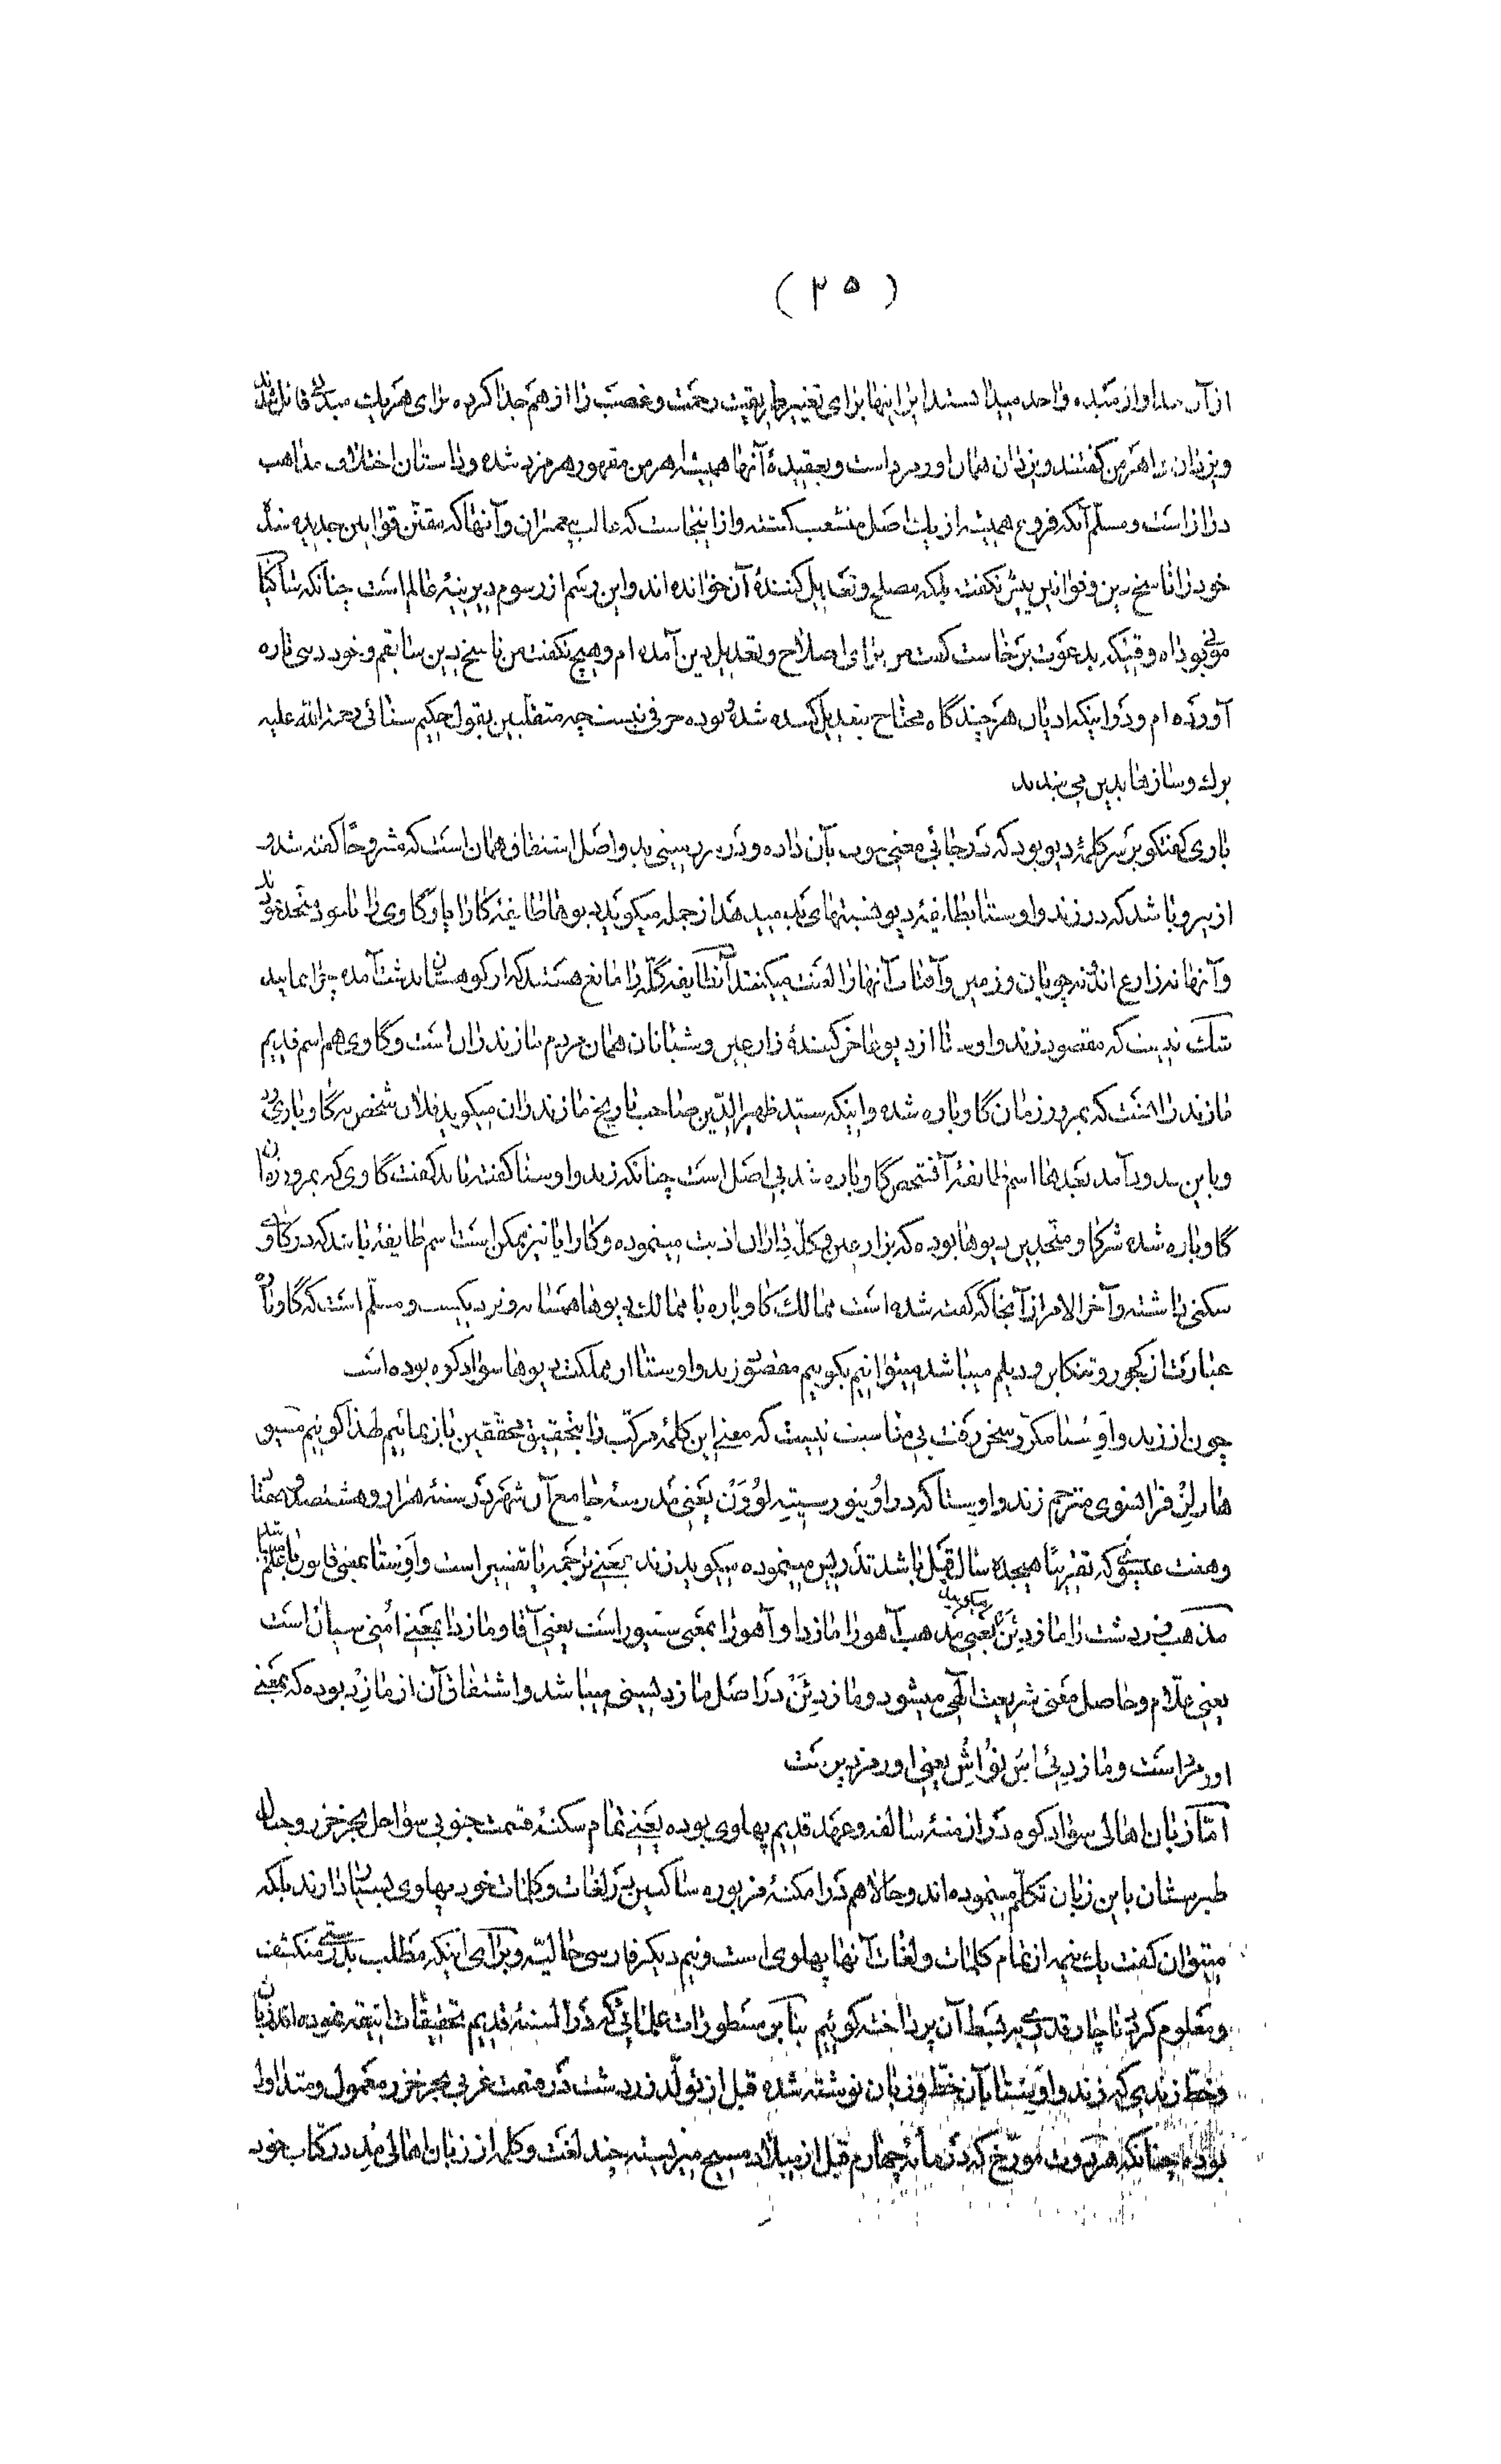 ( ۲۵ )
واحد میدانستند اینها برای تغییر طریقت رحمت و غضب را از هم جدا کرده برای هر یک مبدئی قائل شدند
و یزدان را اهرمن گفتند و یزدان همان اورمزد است و بعقیدهٔ آنها همیشه اهرمن مقهور هرمزد شده و داستان اختلاف مذاهب
دراز است و مسلّم آنکه فروع همیشه از یک اصل منشعب گشته و از اینجاست که غالب پیغمبران و آنها که مقنّن قوانین جدیده شده
خود را ناسخ دین و قوانین پیش نگفته بلکه مصلح و تعدیل کنندهٔ آن خوانده‌اند و این رسم از رسوم دیرینهٔ عالم است چنانکه
وقتیکه بدعوت برخاست گفت من برای اصلاح و تعدیل دین آمده‌ام و هیچ نگفت من ناسخ دین سابقم و خود دینی تازه
آورده‌ام و در اینکه ادیان هر چند گاه محتاج بتعدیل کننده شده و بوده حرفی نیست چه متقلبین بقول حکیم سنائی رحمة الله علیه
برگ و سازها بدین می‌بندند
باری گفتگو بر سر کلمهٔ دیو بود که در جائی معنی خوب بآن داده و در بد و اصل اشتقاق همان است که مشروحاً گفته شد و
از اینرو باشد که در زند و اوستا بطایفهٔ دیو نسبتهای بد میدهد از جمله میگوید دیوها طایفهٔ کارا یا و گاوی را با خود متحد نمودند
و آنها نه زارع‌اند و نه چوپان و زمین و آفتاب آنها را لعنت میکنند آنطایفه گلّه را مانع هستند که از کوهستان بدشت آمده چرا نماید
شک نیست که مقصود زند و اوستا از دیوها خر کنندهٔ زارعین و شبانان همان مردم مازندران است و گاوی هم اسم قدیم
مازندرانست که بمرور زمان گاوباره شده و اینکه سید ظهیرالدّین صاحب تاریخ مازندران میگوید فلان شخص
بعدها اسم طایفهٔ آنشخص گاوباره شد بی اصل است چنانکه زند و اوستا گفته باید گفت گاوی که بمرور زمان
گاوباره شده شرکا و متحدین دیوها بوده که بزارعین و گلّه‌داران اذیت مینموده و کارایا نیز ممکن است اسم طایفهٔ باشد که در گاوی
سکنی داشته و آخر الامر از آنجا که گفته شده است ممالک گاوباره با ممالک دیوها همسایه و نزدیکست و مسلّم است که گاوباره
عبارت از کجور و تنکابن و دیلم میباشد میتوانیم بگوییم مقصود زند و اوستا از مملکت دیوها سوادکوه بوده است
چون از زند و اوستا مکرّر سخن رفت بی‌مناسبت نیست که معنی این کلمهٔ مرکّب را بتحقیق محققین باز نمائیم لهذا گوئیم مسیو
هارلز فرانسوی مترجم زند و اوستا که در اونیورسیته لوون یعنی مدرسهٔ جامع آن شهر در سنهٔ هزار و هشتصد و هفتاد
و هفت عیسوی که تقریباً هیجده سال قبل باشد تدریس مینموده میگوید زند بمعنی ترجمه یا تفسیر است و اوستا بمعنی قانون یا علم
مذهب زردشت را مازدیئن یعنی مذهب آهورا مازدا و آهورا بمعنی سنیور است یعنی آقا و مازدا بمعنی
یعنی علّام و حاصل معنی شریعت الهی میشود و مازدیئن در اصل مازدیسنی میباشد و اشتقاق آن از مازد بوده که بمعنی
اورمزد است و مازدیئی یعنی اورمزد پرست
امّا زبان اهالی سوادکوه در ازمنهٔ سالفه و عهد قدیم پهلوی بوده یعنی تمام سکنهٔ قسمت جنوبی سواحل بحر خزر و جبال
طبرستان باین زبان تکلّم مینموده‌اند و حالا هم در امکنهٔ مزبوره ساکنین در لغات و کلمات خود پهلوی بسیار دارند بلکه
میتوان گفت یک نیمه از تمام کلمات و لغات آنها پهلوی است و نیم دیگر فارسی حالیه و برای اینکه مطلب بدرستی منکشف
و معلوم گردد ناچار قدری به بسط آن پرداخته گوئیم بنا بر مسطورات علمائی که در السنهٔ قدیم تحقیقات انیقه نموده‌اند زبان
و خطّ زندی که زند و اوستا بآن خطّ و زبان نوشته شده قبل از تولّد زردشت در قسمت غربی بحر خزر معمول و متداول
بوده چنانکه هردوت مورّخ که در مائهٔ چهارم قبل از میلاد مسیح میزیسته چند لغت و کلمه از زبان اهالی مد در کتاب خود